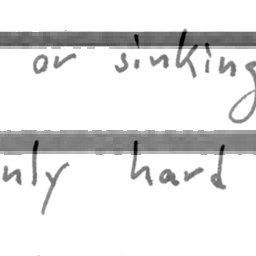 or sinking
nly hard